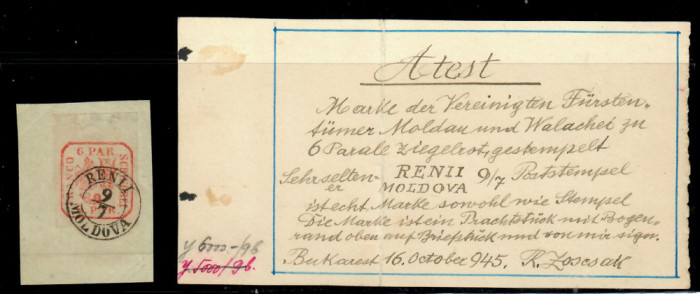 6 PAR
RENII
9
7
MOLDOVA
Atest
Marke der Vereinigten Fürsten-
tümer Moldau und Walachei zu
6 Parale ziegelrot, gestempelt
Sehr selten- RENII 9/7 Poststempel
er MOLDOVA
ist echt Marke sowohl wie Stempel
Die Marke ist ein Prachtstück mit Bogen-
rand oben auf Briefstück und von mir sign.
Bukarest 16. October 945. R.
y 6000-/9b
y. 5000/9b.